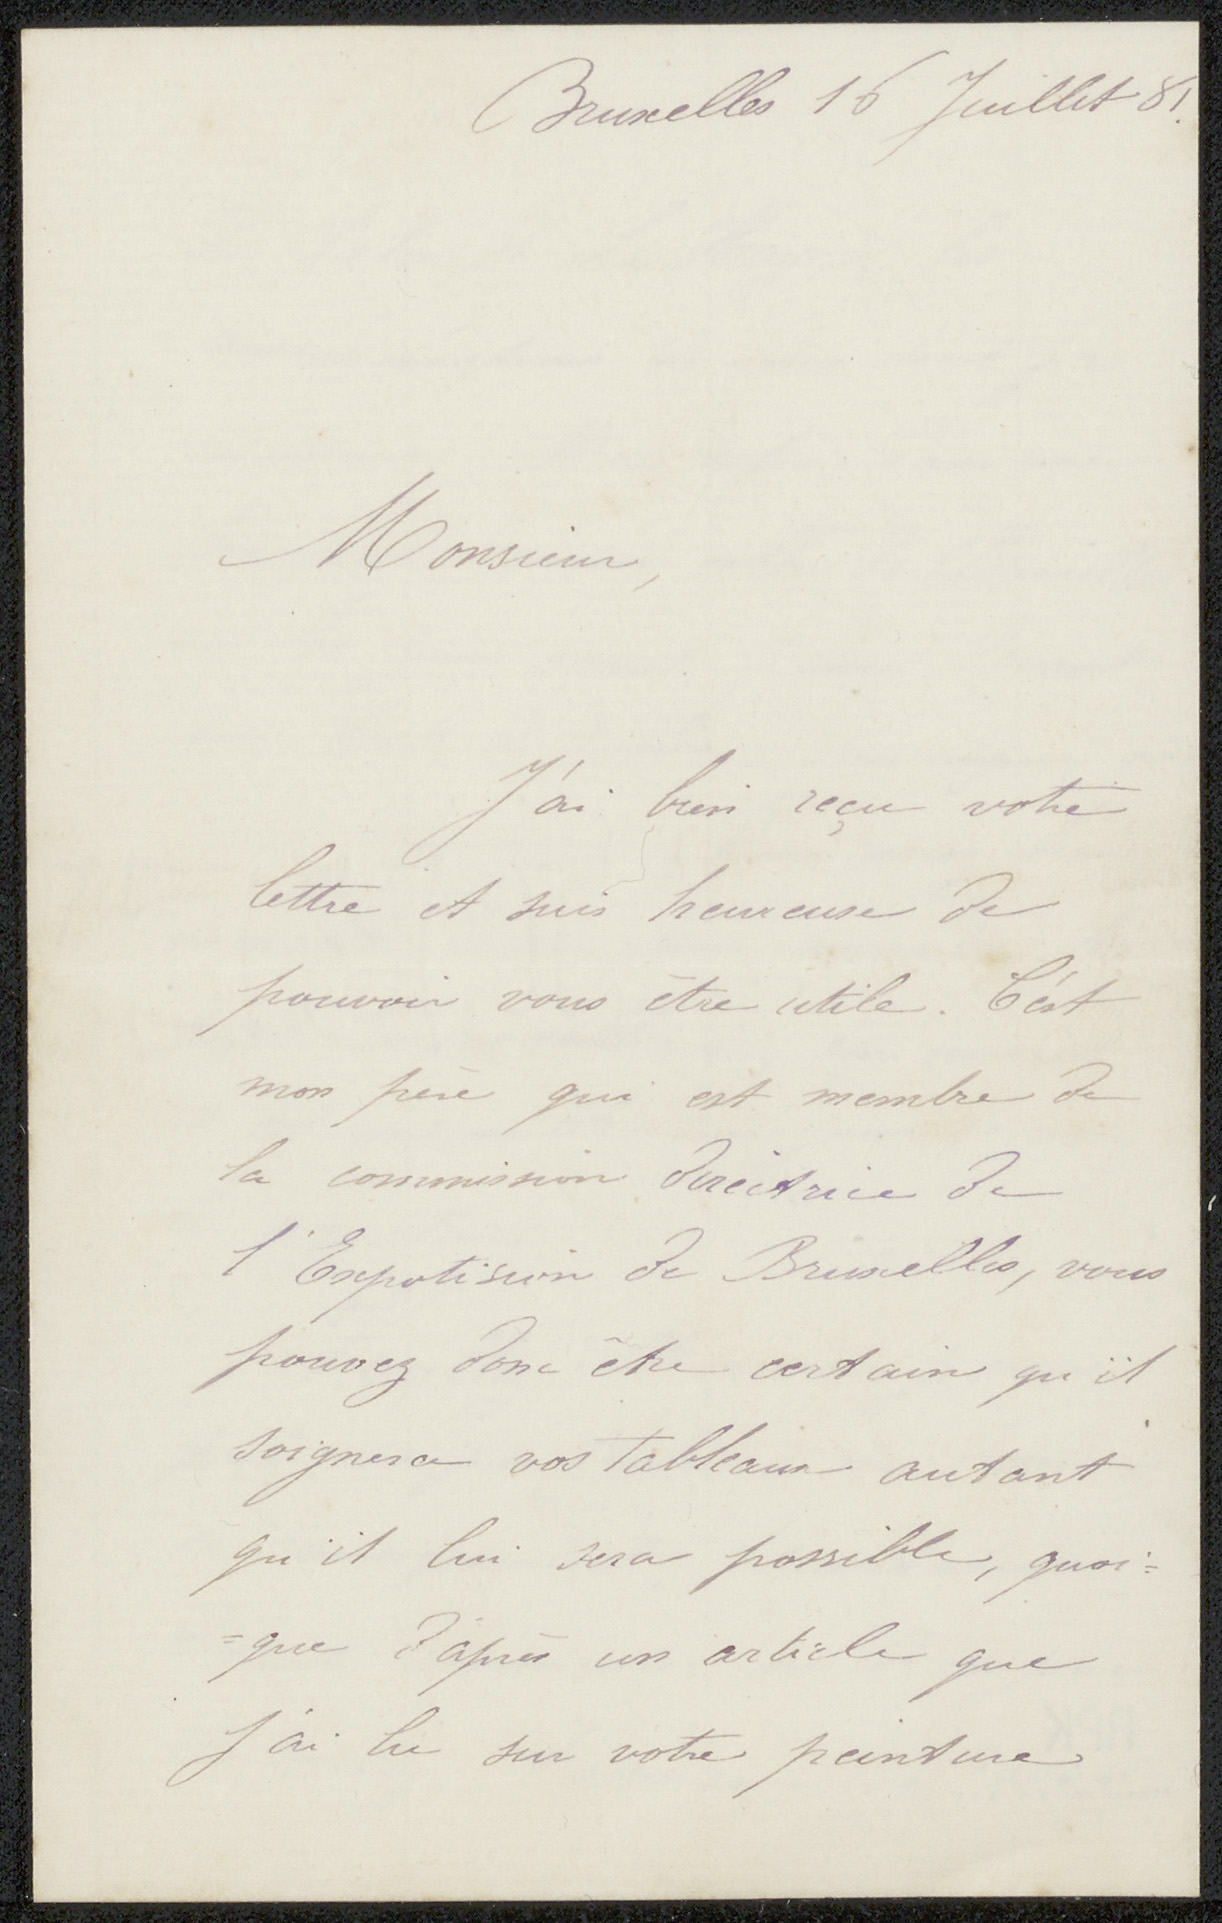 Bruxelles 16 Juillet 81.
Monsieur,
J'ai bien reçu votre
lettre et suis heureuse de
pouvoir vous être utile. C'est
mon père qui est membre de
la commission directrice de
l'Expotision de Bruxelles, vous
pouvez donc être certain qu'il
soignera vos tableaux autant
qu'il lui sera possible, quoi=
=que d'après un article que
j'ai lu sur votre peinture